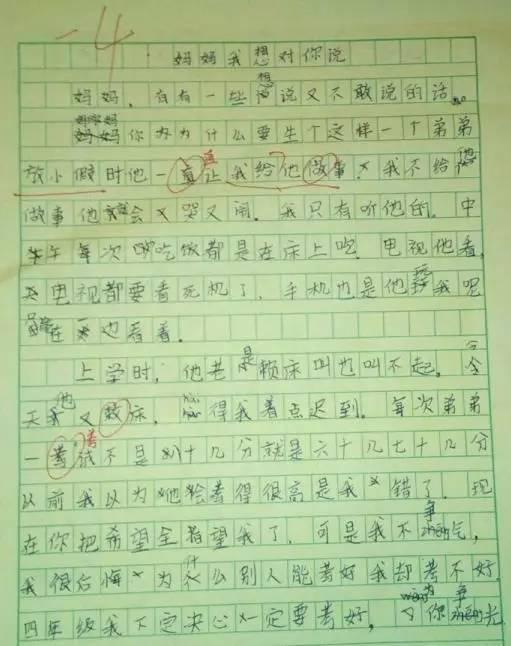 -4
妈妈我想对你说
妈妈，自有一些想说又不敢说的话。
妈妈你为什么要生个这样一个弟弟
放小假时他一直让我给他做事，我不给他
做事他就会哭又闹。我只有听他的。中
午每次吃饭都是在床上吃。电视他看，
电视都要看死机了，手机也是他玩我呢
在也看着。
上学时，他老是赖床叫也叫不起。今
天他又救床，得我着点迟到。每次弟弟
一考试不是八十几分就是六十几七十几分
以前我以为他会考得很高是我错了。现
在你把希望全指望我了，可是我不争气，
我很后悔为什么别人能考好我却考不好，
四年级我下定决心一定要考好，为你争光